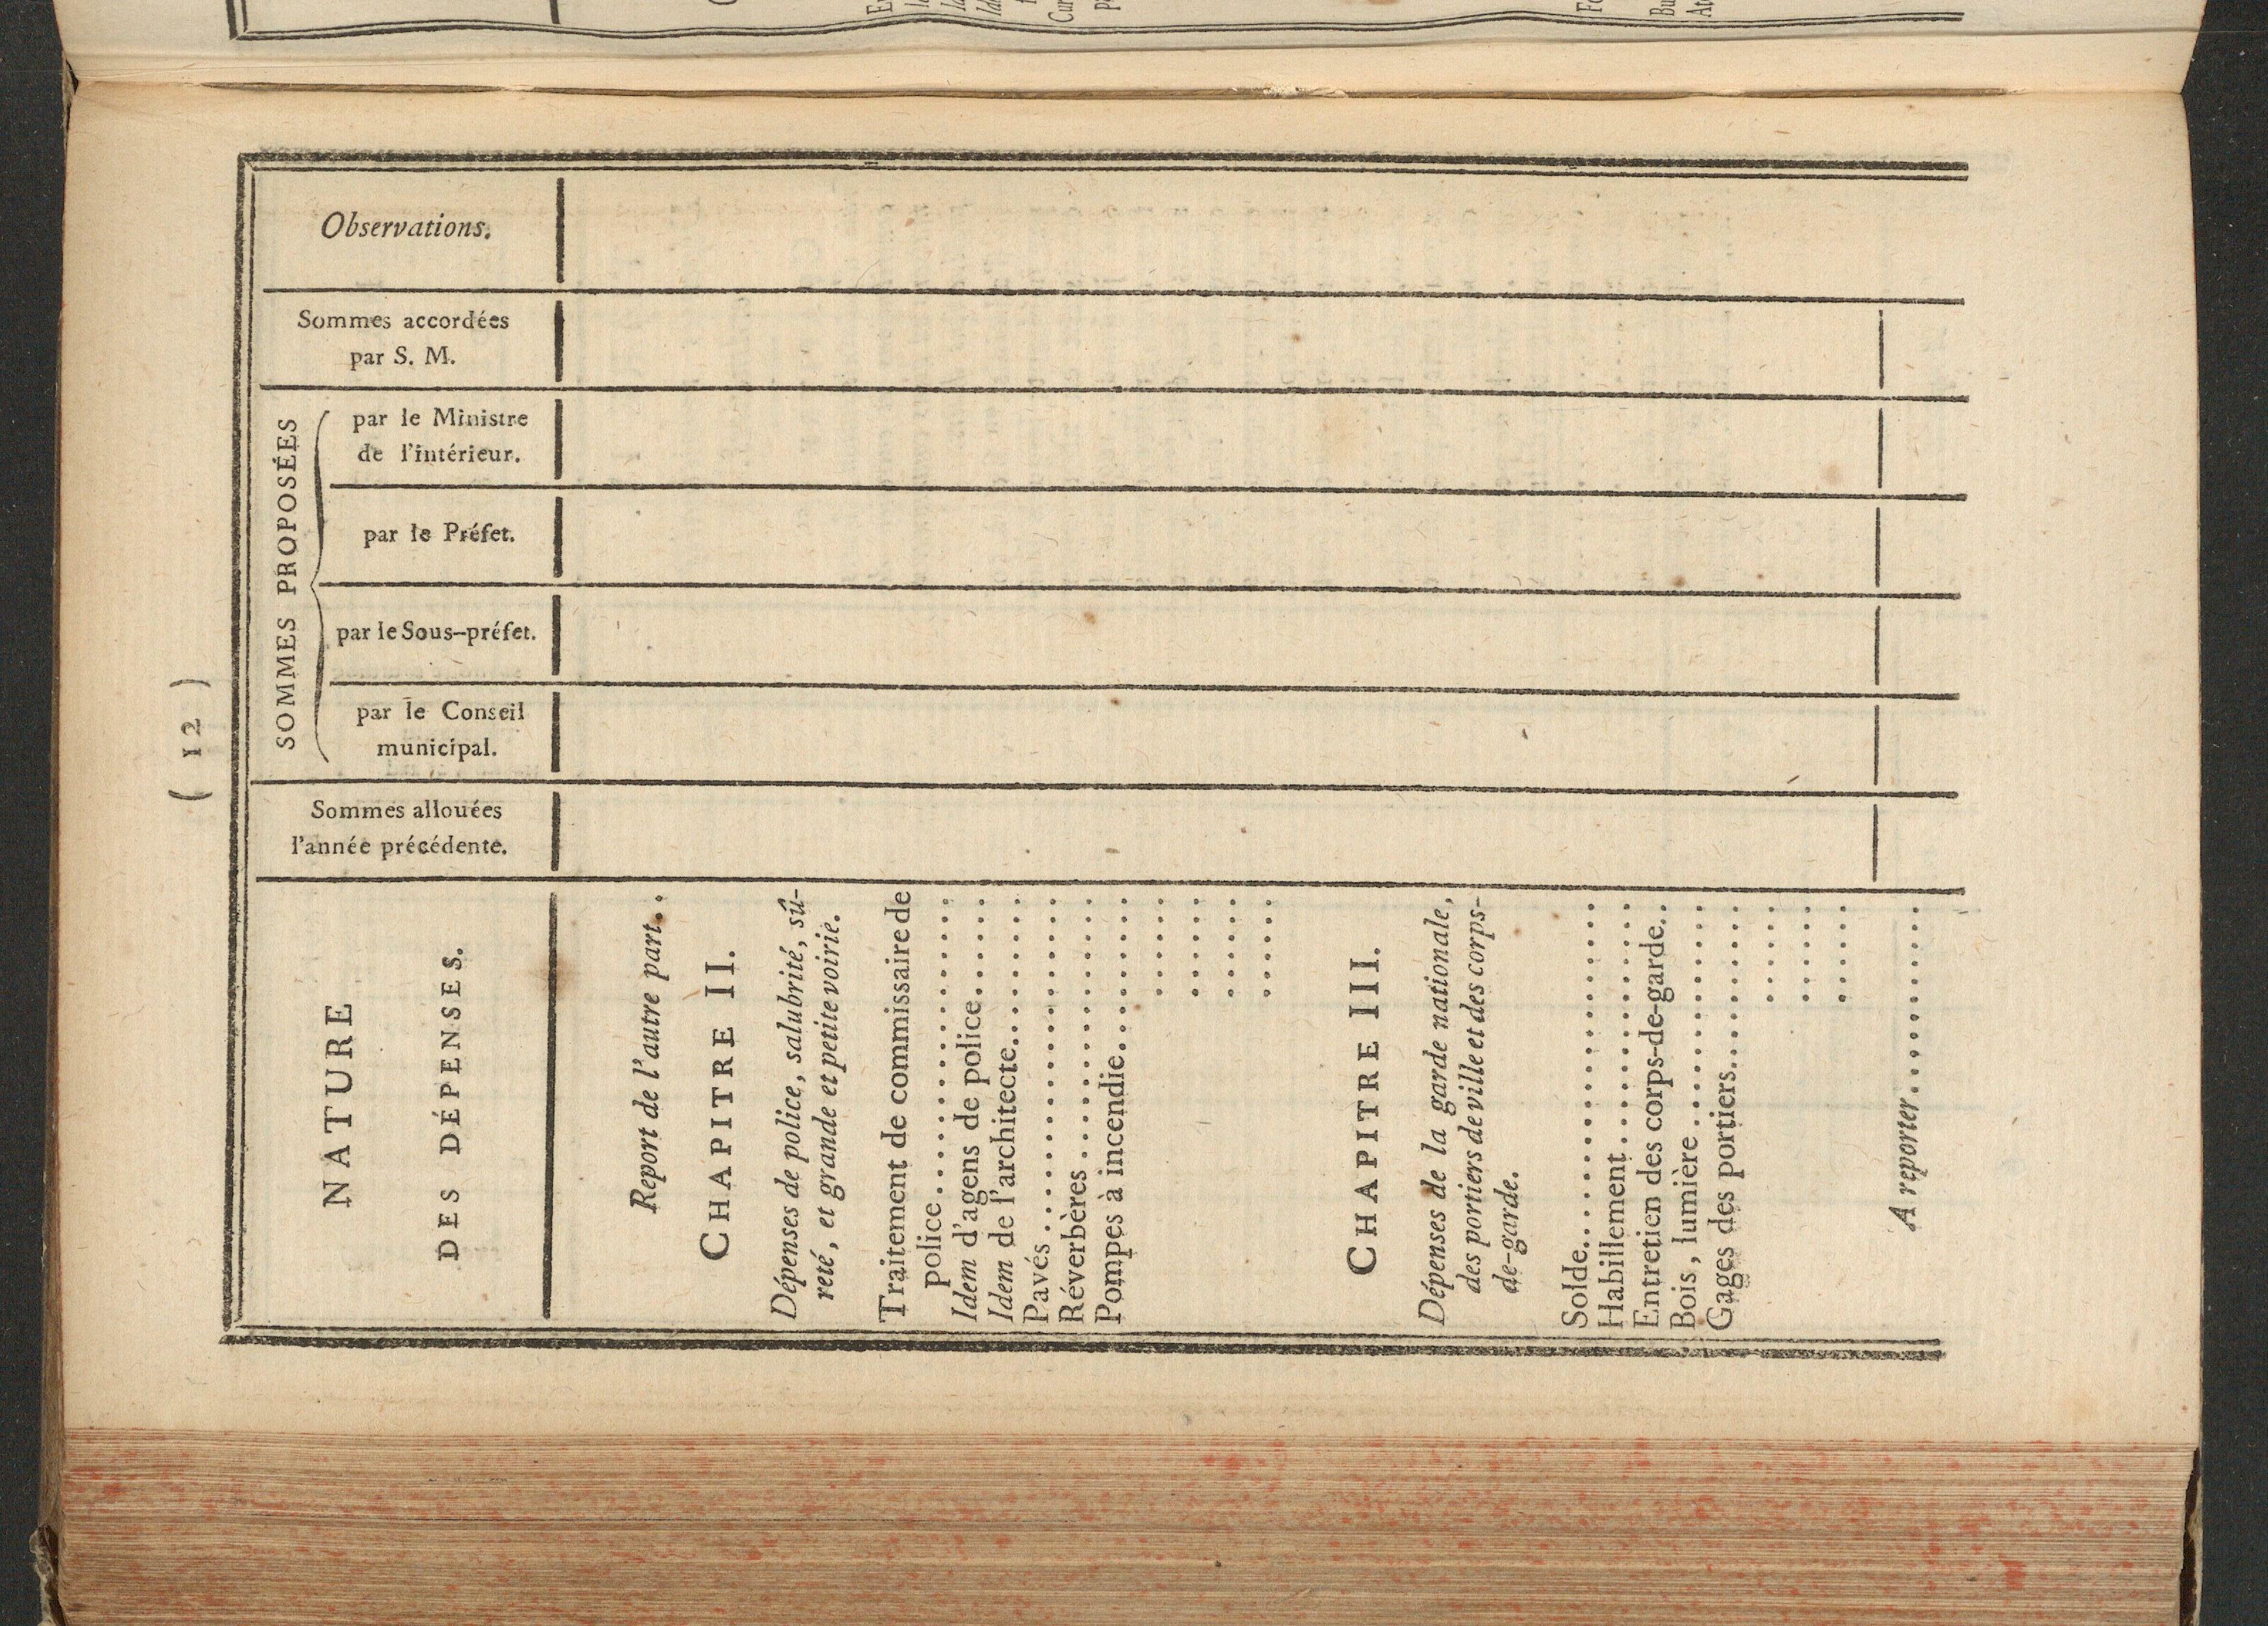 ( 12 )
NATURE
DES DÉPENSES.
Sommes allouées
l'année précédente.
SOMMES PROPOSÉES
par le Conseil
municipal.
par le Sous-préfet.
par le Préfet.
par le Ministre
de l'intérieur.
Sommes accordées
par S. M.
Observations.
Report de l'autre part...
CHAPITRE II.
Dépenses de police, salubrité, sû-
reté, et grande et petite voirie.
Traitement de commissaire de
police..................
Idem d'agens de police.......
Idem de l'architecte..........
Pavés....................
Réverbères...............
Pompes à incendie..........
......
......
......
......
CHAPITRE III.
Dépenses de la garde nationale,
des portiers de ville et des corps-
de-garde.
Solde....................
Habillement..............
Entretien des corps-de-garde..
Bois, lumière.............
Gages des portiers..........
......
......
......
A reporter............